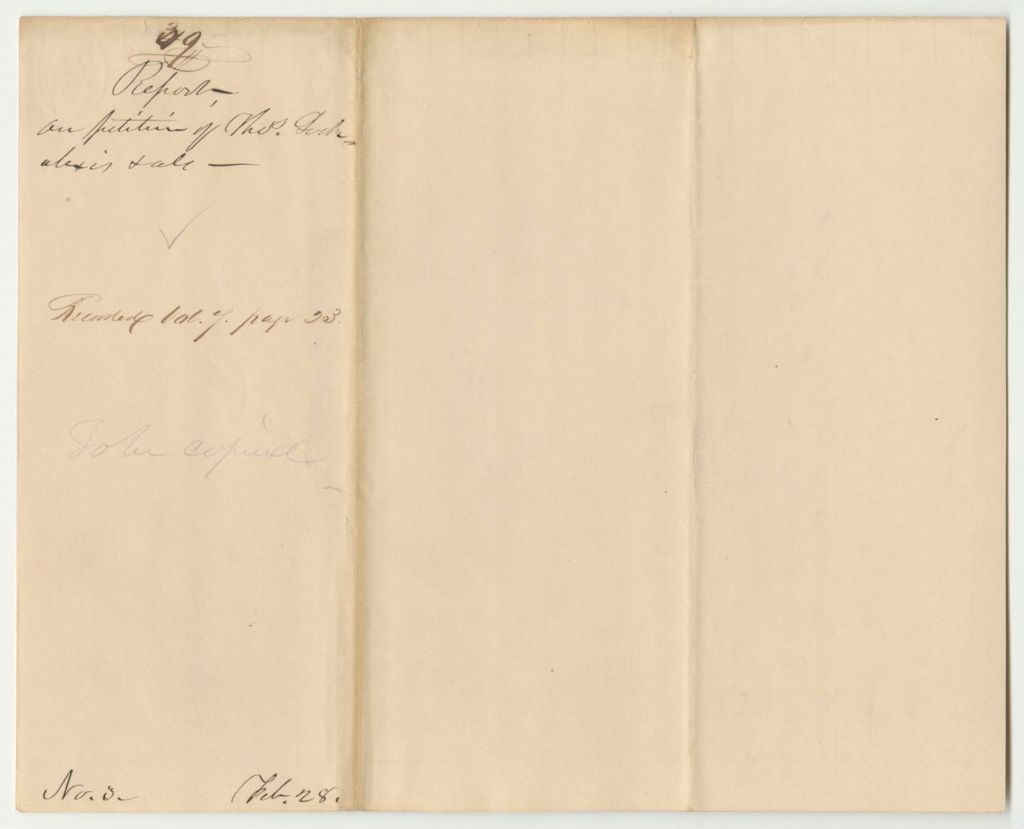 39
Report
on petition of Thos. Sock-
alexis & als —
Recorded Vol. 7. page 23.
To be copied
No. 3 -
Feb. 28.